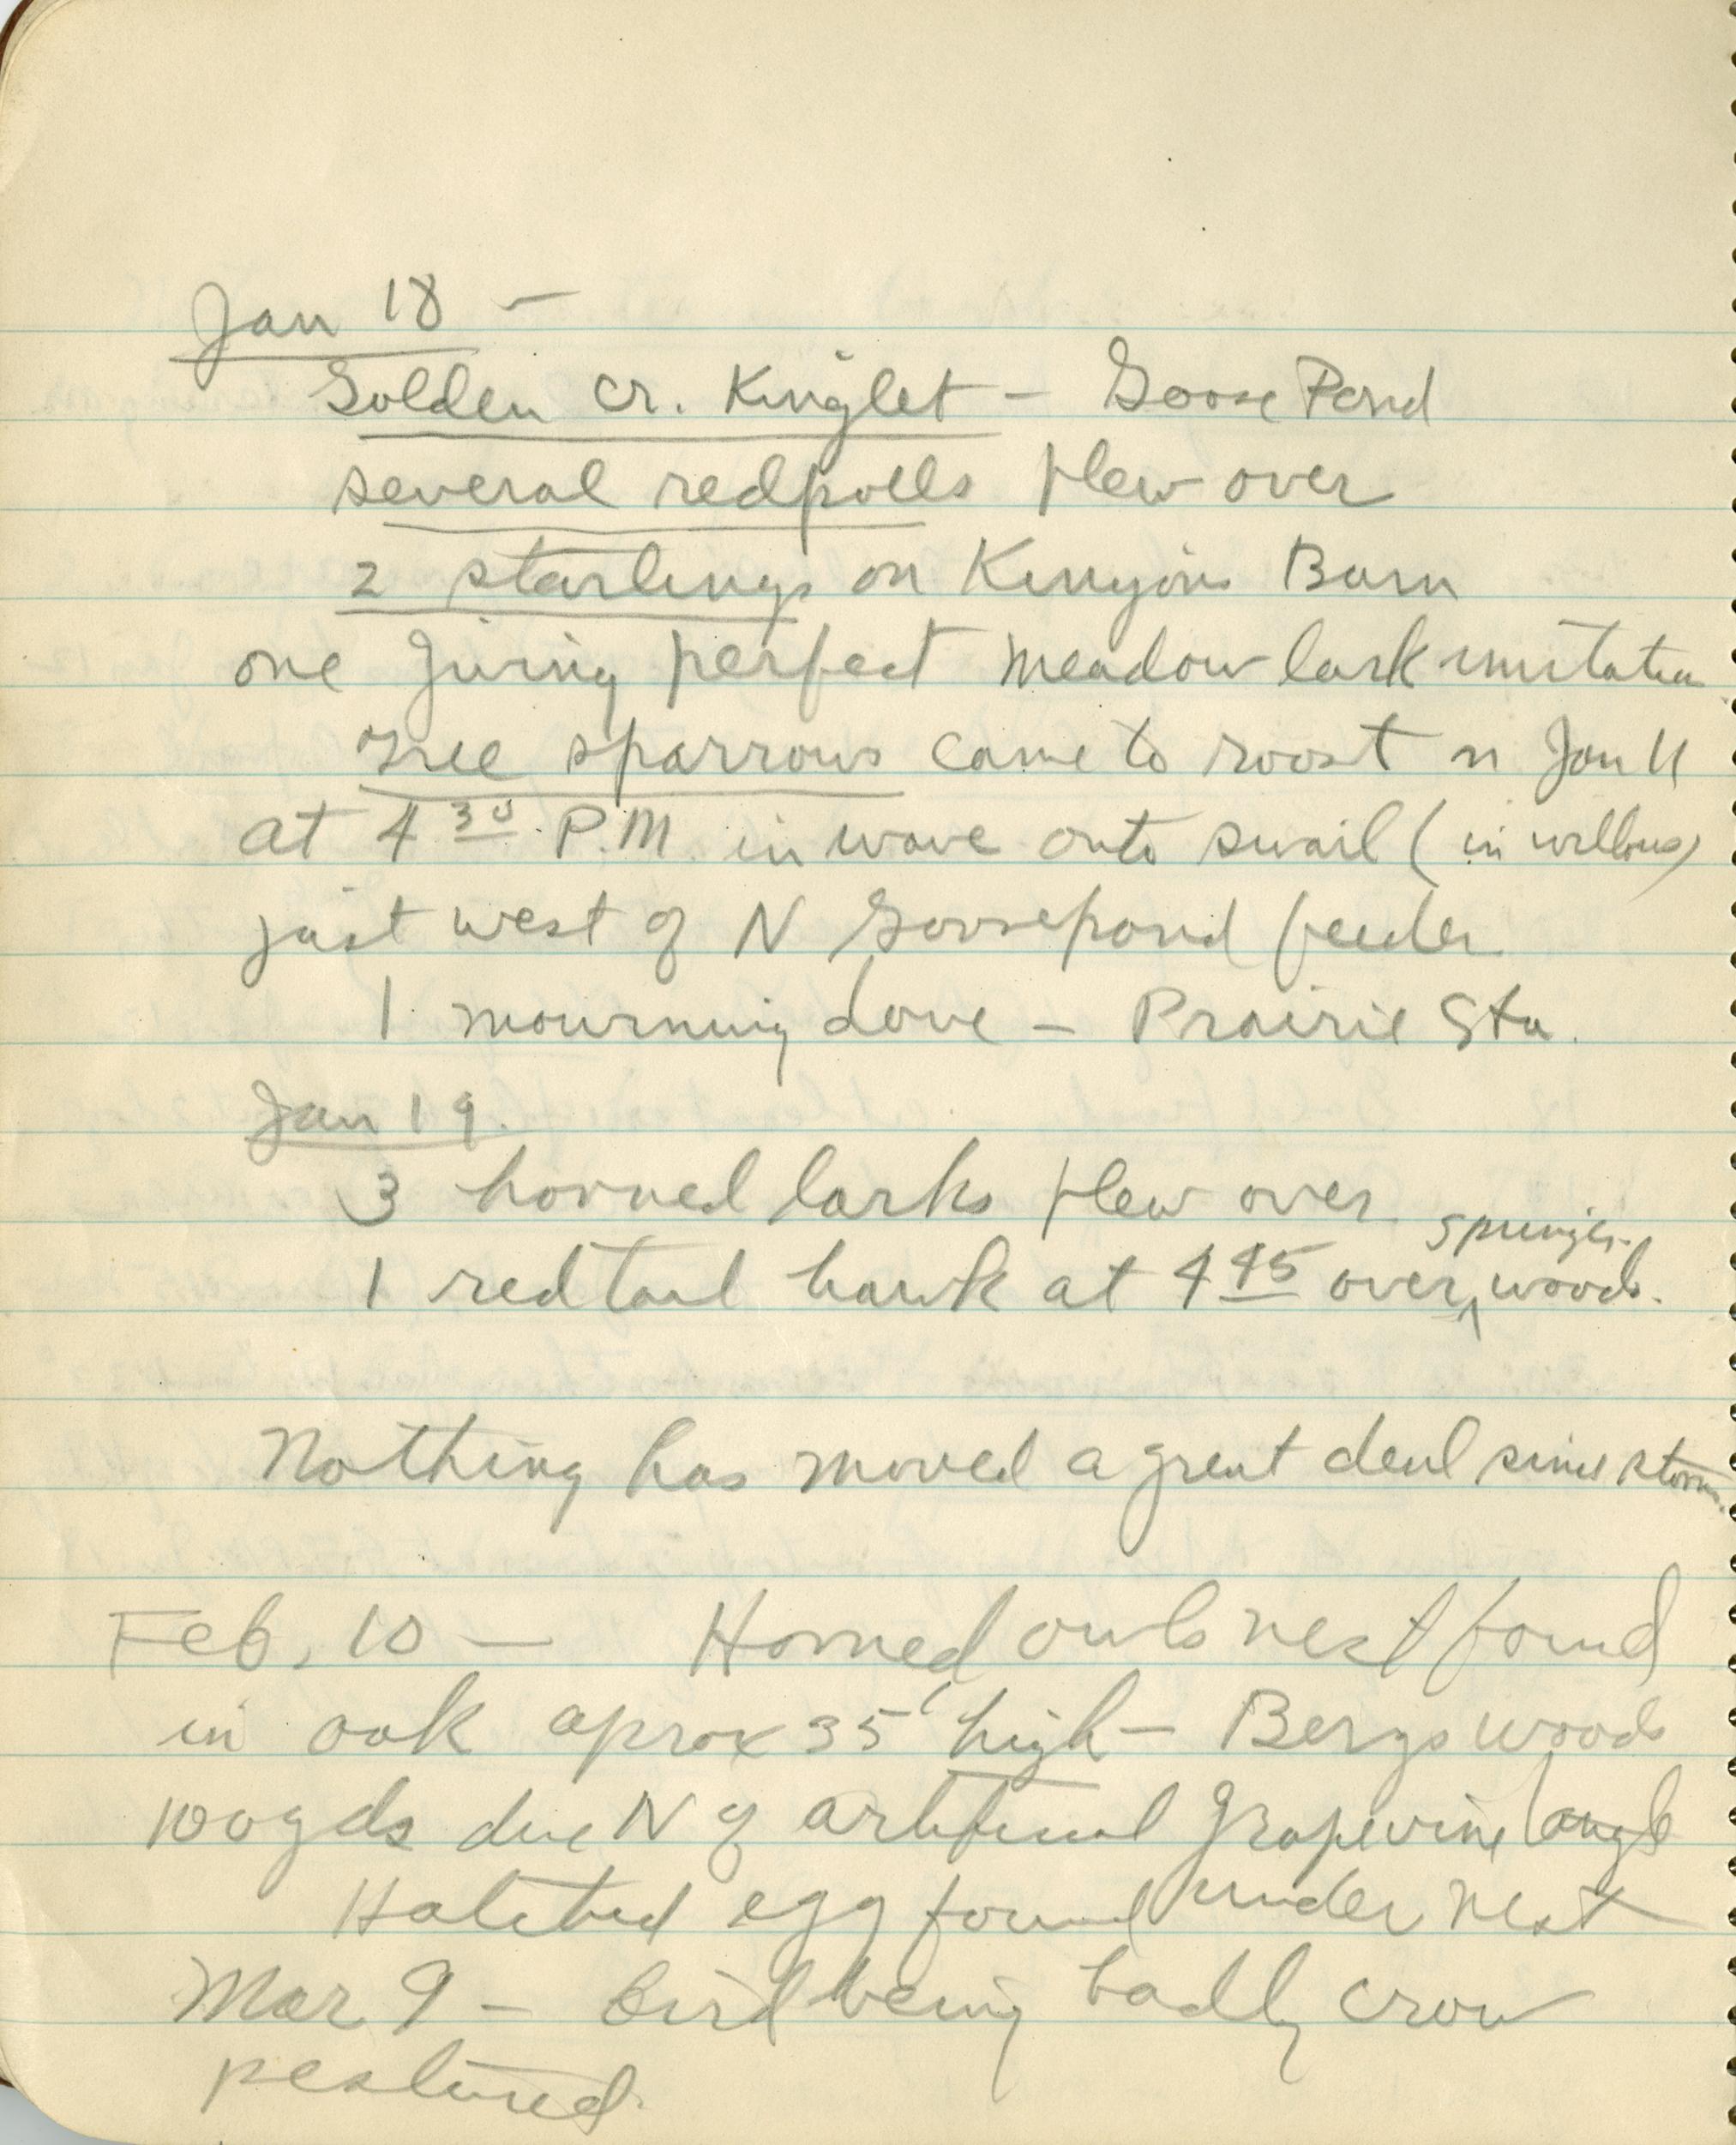 Jan 18 —
Golden Cr. Kinglet — Goose Pond
several redpolls flew over
2 starlings on Kenyons Barn
one giving perfect meadowlark imitation
Tree sparrows came to roost on Jan 11
at 4 30 P.M. in wave onto swail (in willows)
just west of N Goosepond feeder
1 mourning dove — Prairie Sta.
Jan 19.
3 horned larks flew over
1 redtail hawk at 4 45 over woods.
Nothing has moved a great deal since storm.
Feb. 10 — Horned owls nest found
in oak aprox 35' high — Bergs woods
100 yds due N of artificial grapevine
Hatched egg found under nest
Mar 9 — bird being badly crow
pestured.